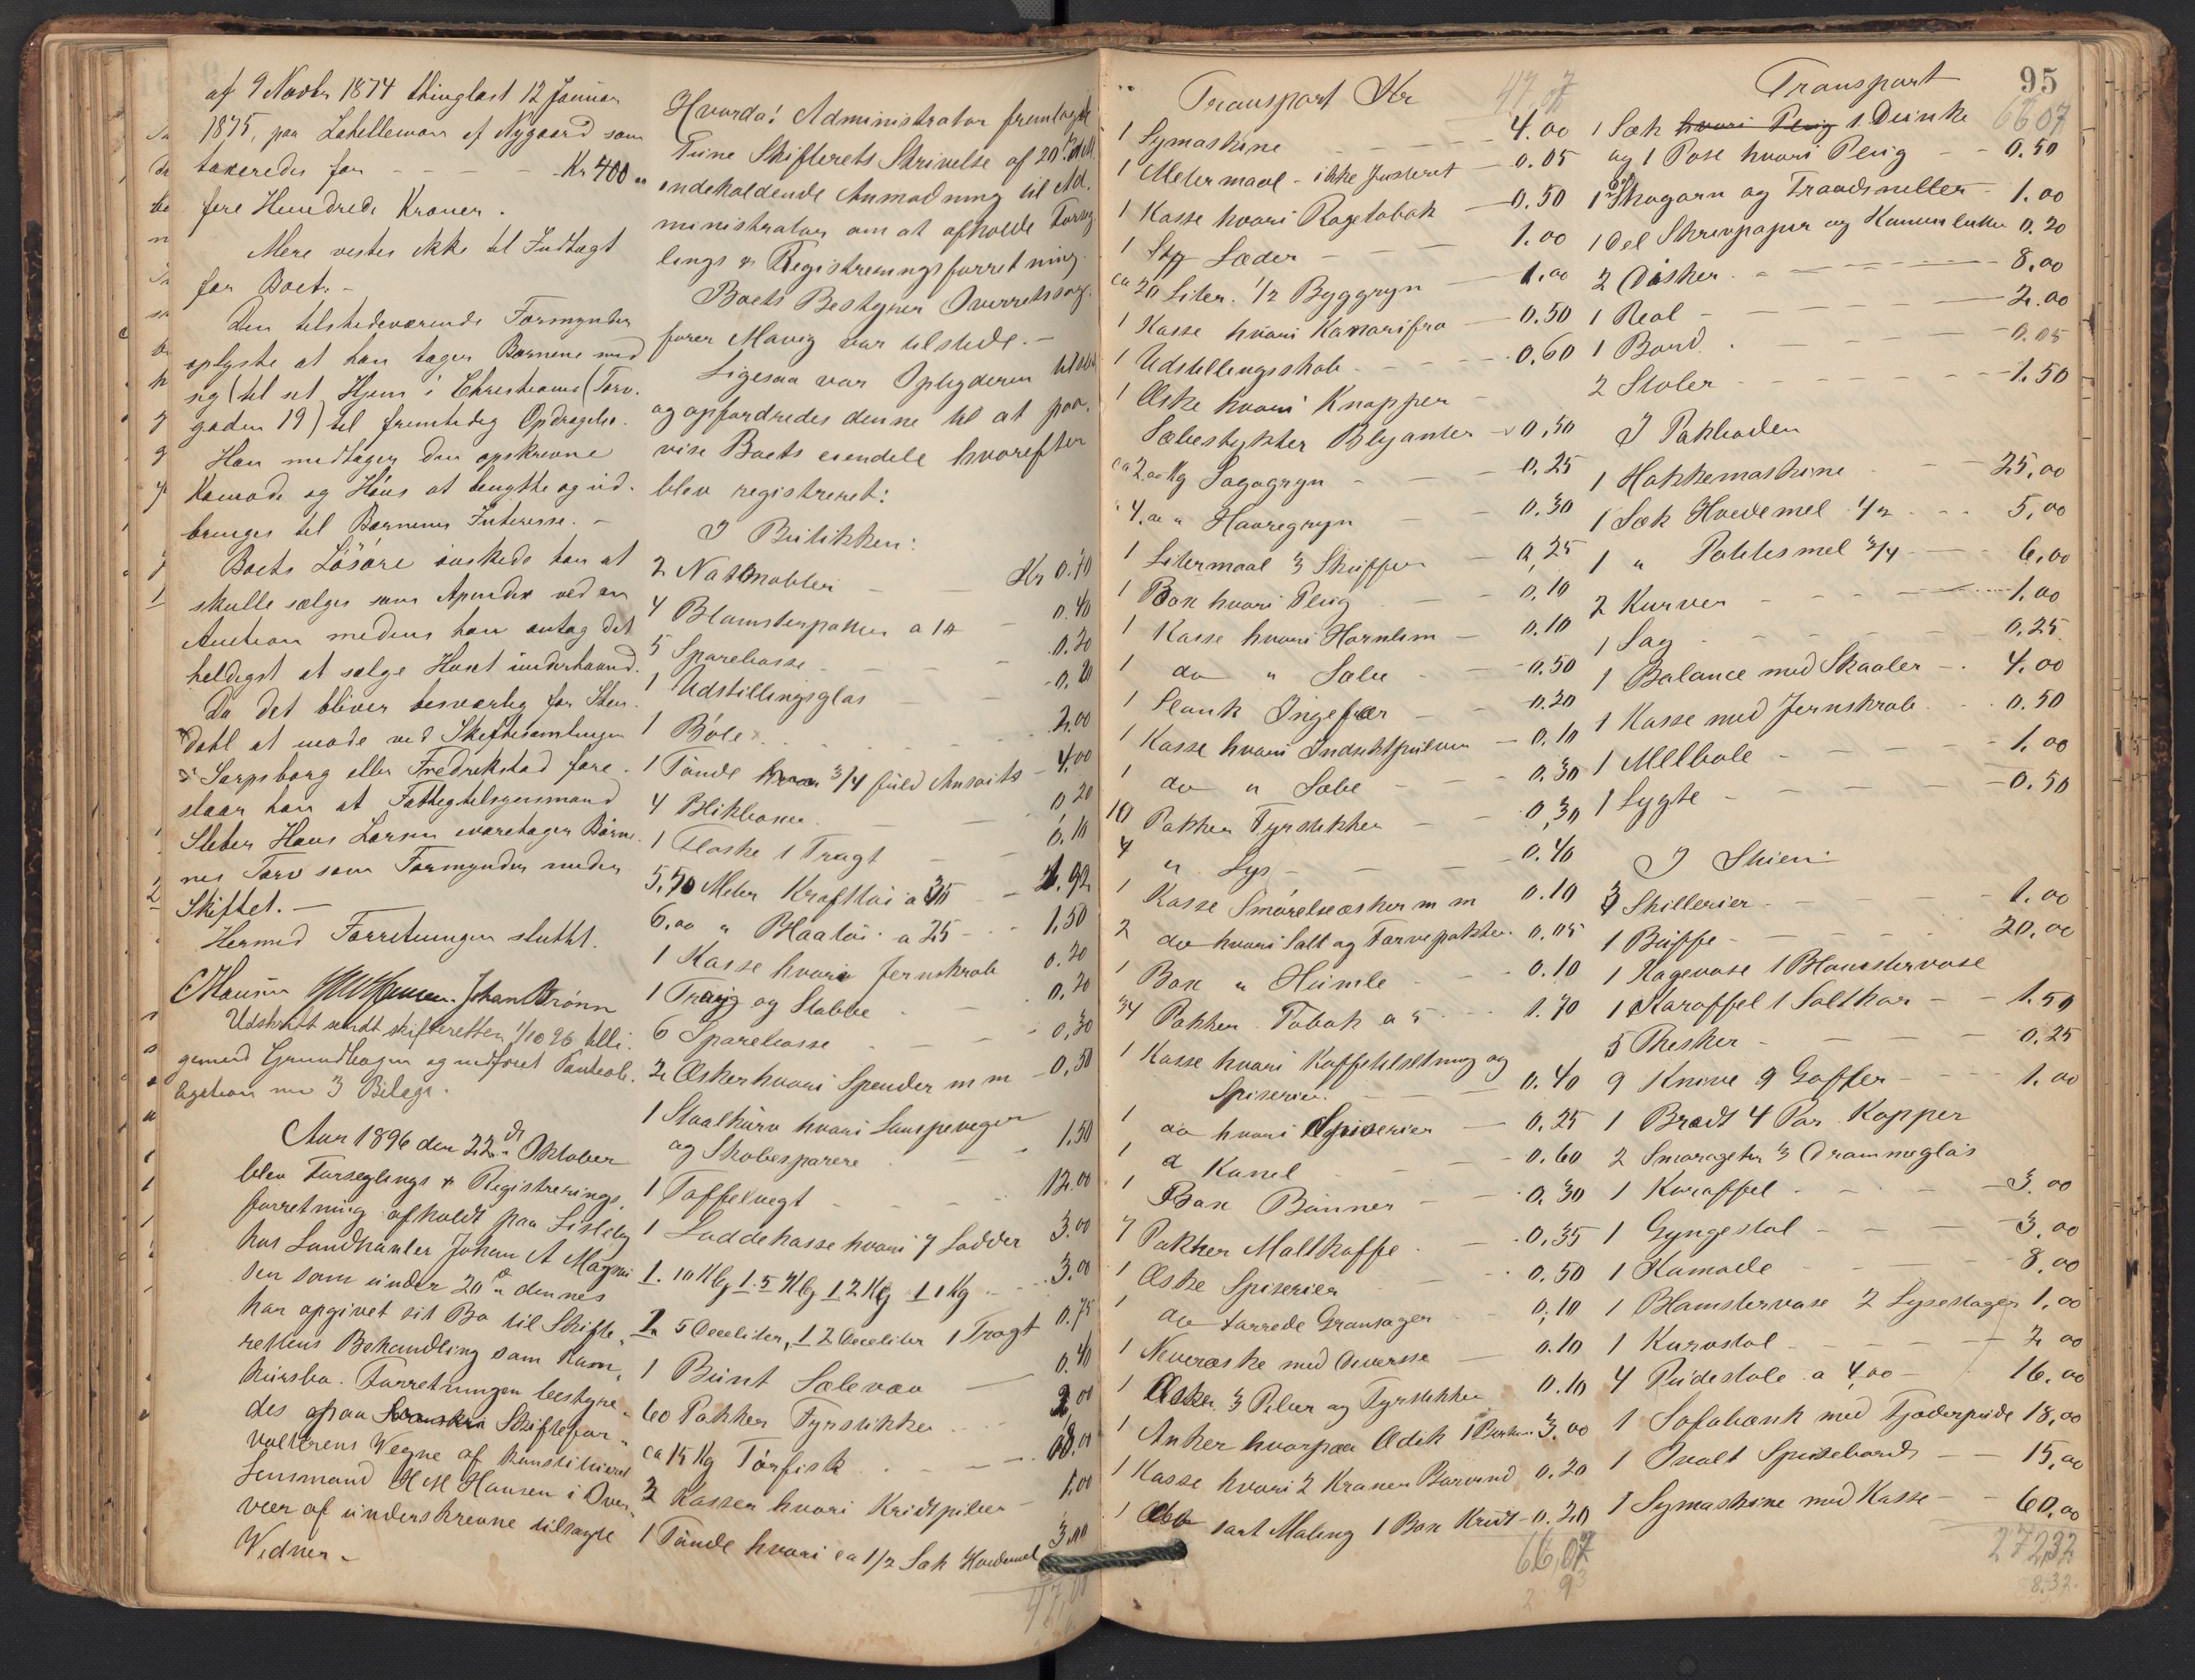 af 9 Novbr 1874 thinglæst 12 Januar
1875, paa Løkellemoen af Nygaard som
taxeredes for - - - - Kr 400 "
fire Hundrede Kroner.
Mere vistes ikke til Indtægt
for Boet. -
Den tilstedeværende Formynder
oplyste at han tager Børnene med
sig (til sit Hjem i Christiania (Torv-
gaden 19) til fremtidig Opdragelse.
Han modtager den opskrevne
Komode og Haus at benytte og ud-
bringes til Børnenes Interesse. -
Boets Løsøre ønskede han at
skulle sælges som Apendix ved en
Auction medens han antog det
heldigst at sælge Huset underhaand.
Da det bliver besværlig for Sten-
dahl at møde ved Skiftesamlinger
i Sarpsborg eller Fredrikstad fore-
slaar han at Fattigtilsynsmand
Sleber Hans Larsen varetager Børne-
nes Tarv som Formynder under
Skiftet. -
Hermed Forretningen sluttet.
Johan Brønn
Udskrift sendt skifteretten 1/10 96 tilli-
gemed Grundbogen og medfört Panteob-
ligation m 3 Bilage.
Aar 1896 den 22de Oktober
blev Forseglings & Registrerings-
forretning afholdt paa Lisleby
hos Landhandler Johan A Magnu-
sen som under 20de dennes
har opgivet sit Bo til Skifte-
rettens Behandling som Kon-
kursbo. Forretningen bestyre-
des paa Skiftefor-
valterens Vegne af konstitueret
Lensmand H M Hansen i Over-
vær af underskrevne tilsagte
Vidner -
Hvorda! Administrator fremlagde
Tune Skifterets Skrivelse af 20de ds
indeholdende Anmodning til Ad-
ministrator om at afholde Forseg-
lings & Registreringsforretning.
Boets Bestyrer Overretssag-
fører Mavig var tilstede. -
Ligesaa var Opbyderen tilstede
og opfordredes denne til at paa-
vise Boets eiendele hvorefter
blev registreret:
I Butikken:
2 Natmøbler - - Kr 0.10
4 Blomsterpotter a 10 - 0.40
5 Sparebøsse - - - 0.20
1 Udstillingsglas - 0.20
1 Bøle - - - 2.00
1 Tønde 3/4 fuld Ansoits - 4.00
4 Blikboxer - - 0.20
1 Flaske 1 Tragt - - 0.10
5,70 Meter Krafttøi a 35 - 1.92
6,00 " Blaatøi a 25 - - 1.50
1 Kasse hvori Jernskrab 0.20
1 Traug og Stabbe - - 0.20
6 Sparebøsse - - - 0,30
2 Æsker hvori Spender m m - 0,50
1 Staalkurv hvori Lampeveger
og Skobesparere - - 1.50
1 Taffelvegt - - - 12.00
1 Loddekasse hvori 7 Lodder 3.00
1. 10 Klg 1. 5 Klg 1 2 Klg 1 1 Kg - - 3.00
1 5 Deciliter, 1 2 Deciliter 1 Tragt 0.75
1 Bunt Sælevær - 0.40
60 Pakker Fyrstikker - - 2.00
ca 15 Kg Tørfisk - - - 8.00
2 Kasser hvori Kridtpiber - 1.00
1 Tønde hvori ca 1/2 Sæk Hvedemel 3.00
95
Transport Kr 47.07
1 Symaskine - - - 4.00
1 Metermaal - ikke justeret - 0.05
1 Kasse hvori Røgetobak - 0.50
1 Stg Læder - - - 1.00
ca 20 Liter 1/2 Byggryn - 1.00
1 Kasse hvori Kanarifrø - 0.50
1 Udstillingsskab - - - 0.60
1 Æske hvori Knapper -
Sæbestykker Blyanter - 0,30
ca 2.00 Kg Sagogryn - - 0.25
4.00 " Havregryn - - 0.30
1 Litermaal 3 Skuffer - 0,25
1 Box hvori Plug - - 0.10
1 Kasse hvori Hornlim - 0.10
1 do " Sæbe - - 0.50
1 Slank Ingefær - - 0.20
1 Kasse hvori Indsektpulver - 0.10
1 do " Sæbe - - 0.30
10 Pakker Fyrstikker - - 0,30
4 " Lys - - - 0.40
1 Kasse Smørelseæsker m m 0.10
2 do hvori Salt og Farvepakker 0.05
1 Box " Humle - - 0.10
34 Pakker Tobak a 5 - - 1.70
1 Kasse hvori Kaffetilsetning og
Spiserier - - - 0.40
1 do hvori Spiserier - 0.25
1 d Kanel - - 0.60
1 Box Bønner - - 0.30
7 Pakker Maltkaffe - - 0,35
1 Æske Spiserier - - 0.50
1 do tørrede Grønsager - 0,10
1 Neveræske med Diverse - 0.10
1 Æske 3 Piber og Fyrstikker 0.10
1 Anker hvorpaa Ædik 3.00
1 Kasse hvori 2 Kraner Borvind 0.20
1 do sort Maling 1 Box Kridt - 0.20
66,07
Transport 66 07
1 Sæk hvori Plug 1 Dunke
og 1 Pose hvori Plug - - 0.50
1 Skogarn og Traadsneller - 1.00
1 Del Skrivpapir og Konvolutter 0.20
2 Disker - - - 8.00
1 Reol - - - 2.00
1 Bord - - - 0.05
2 Stoler - - - 1.50
I Pakboden
1 Hakkemaskine - - 25,00
1 Sæk Hvedemel 1/2 - - 5,00
1 " Potetesmel 3/4 - - 6,00
2 Kurver - - - 1.00
1 Sag - - - 0,25
1 Balance med Skaaler - 4.00
1 Kasse med Jernskrab - - 0.50
1 Mélbøle - - - 1,00
1 Lygte - - - 0.50
I Stuen:
3 Skillerier - - - 1.00
1 Buffe - - - 20,00
1 Kagevase 1 Blomstervase
1 Karaffel 1 Saltkar - - 1.50
5 Theskeer - - - 0.25
9 Knive 9 Gafler - - 1.00
1 Brødt 4 Par Kopper
2 Smøragetter 3 Drammeglas
1 Karaffel - - - 3.00
1 Gyngestol - - - 3,00
1 Komode - - - 8,00
1 Blomstervase 2 Lysestager 1,00
1 Kurvstol - - - 2 00
4 Pudestole a 4,00 - 16,00
1 Sofabænk med Fjæderpude 18,00
1 Ovalt Spisebord - 15,00
1 Symaskine med Kasse - - 60,00
272,32